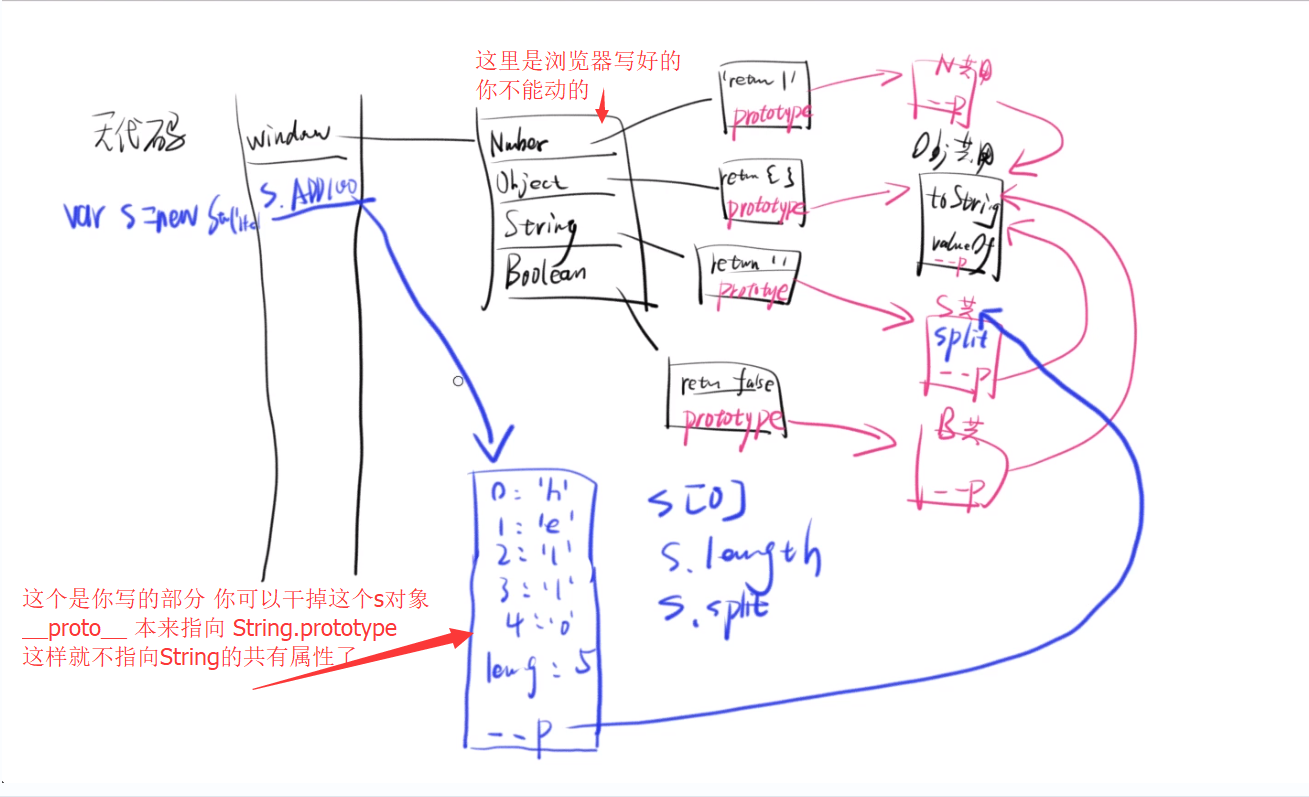 这里是浏览器写好的
你不能动的
无代码
window
s.ADD100
var s=new
Number
Object
String
Boolean
return 1'
prototype
return { }
prototype
return ''
prototye
retun false
prototype
N共用
--P
Obj共用
toString
valueOf
--P
S共
split
--P
B共
--P
0: 'h'
1: 'e'
2: 'l'
3: 'l'
4: 'o'
leng: 5
--P
s[0]
s.length
s.split
这个是你写的部分 你可以干掉这个s对象
__proto__ 本来指向 String.prototype
这样就不指向String的共有属性了